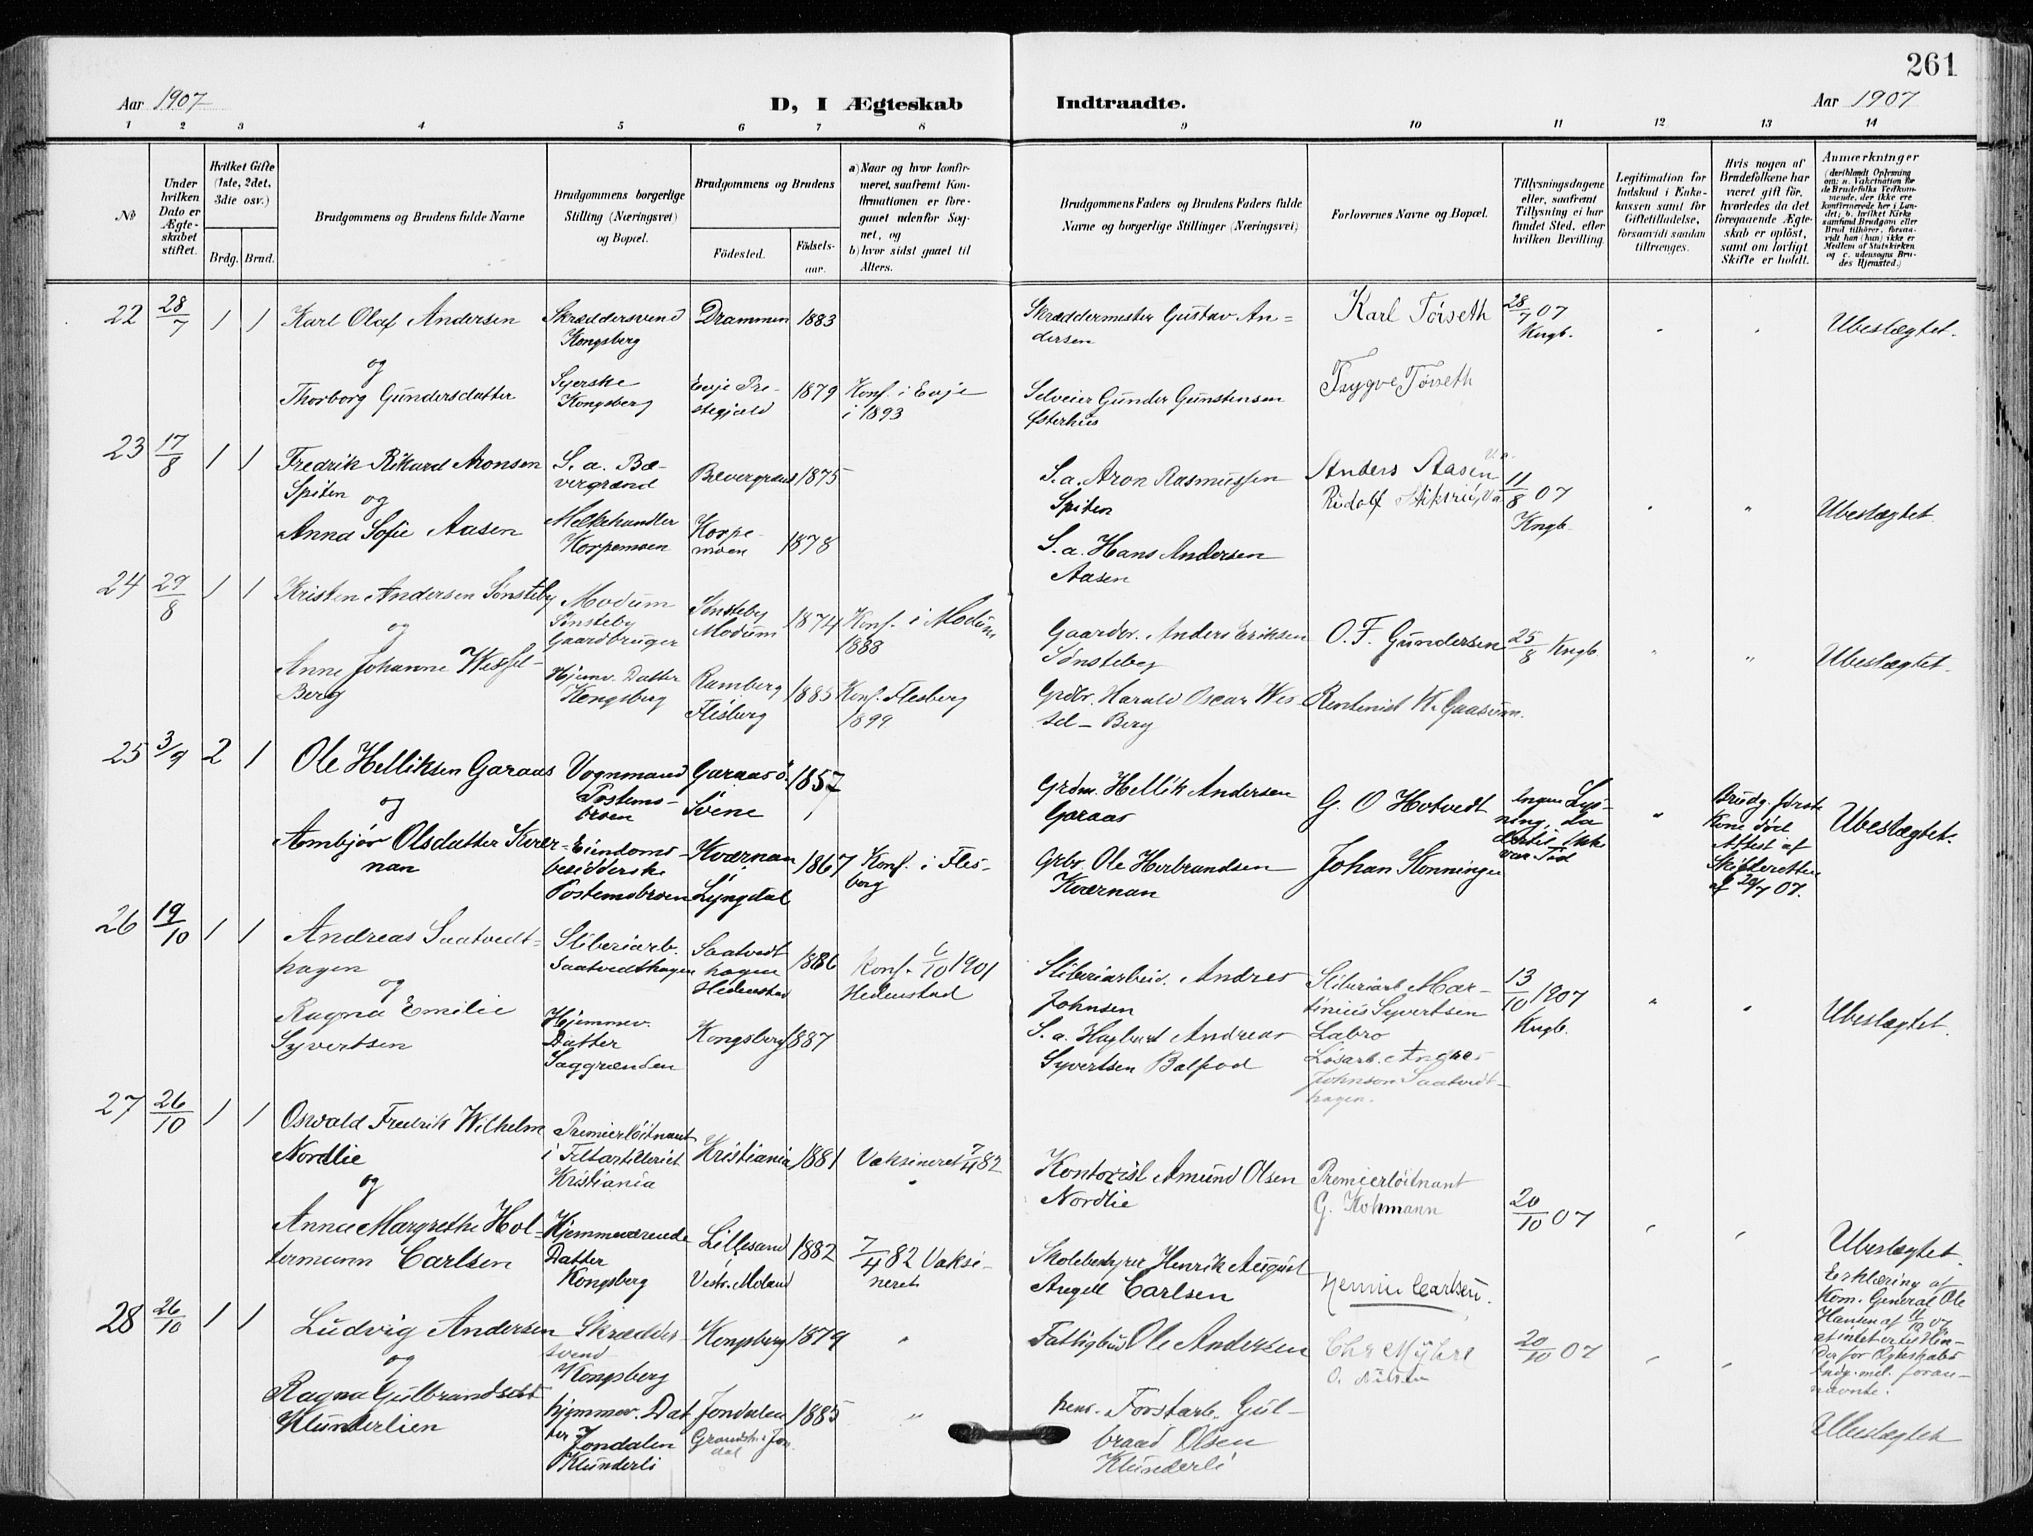 261
Aar 1907
D, I Ægteskab Indtraadte.
Aar 1907
1 2 3 4 5 6 7 8 9 10 11 12 13 14
No
Under hvilken Dato er Ægteskabet stiftet.
Hvilket Gifte (1ste, 2det, 3die osv.)
Brdg. Brud.
Brudgommens og Brudens fulde Navne
Brudgommens borgerlige Stilling (Næringsvei) og Bopæl.
Brudgommens og Brudens
Fødested.
Fødsels-aar.
a) Naar og hvor konfirmeret, saafremt Konfirmationen er foregaaet udenfor Sognet, og
b) hvor sidst gaaet til Alters.
Brudgommens Faders og Brudens Faders fulde Navne og borgerlige Stillinger (Næringsvei)
Forlovernes Navne og Bopæl.
Tillysningsdagene eller, saafremt Tillysning ei har fundet Sted, efter hvilken Bevilling.
Legitimation for Indskud i Enkekassen samt for Giftetilladelse, forsaavidt saadan tiltrænges.
Hvis nogen af Brudefolkene har været gift før, hvorledes da det foregaaende Ægteskab er opløst, samt om lovligt Skifte er holdt.
Anmerkninger
(deriblandt Oplysning om: a. Vakcination for de Brudefolks Vedkommende, der ikke ere konfirmerede her i Landet; b. hvilket Kirkesamfund Brudgom eller Brud tilhører, forsaavidt han (hun) ikke er Medlem af Statskirken og c. udensogns Brudes Hjemsted.)
22 28/7 1 1 Karl Olaf Andersen
Skræddersvend Kongsberg
Drammen 1883
Skræddermester Gustav Andersen
Karl Tørseth
28/7 07 Kngb.
Ubeslægtet.
og
Thorborg Gundersdatter
Syerske Kongsberg
Evje Prestegjæld 1879
Konf. i Evje i 1893
Selveier Gunder Gunstensen Østerhus
Trygve Tørseth
23 17/8 1 1 Fredrik Rikard Aronsen Spiten
S. a. Bævergrænd
Bævergrænd 1875
S. a. Aron Rasmussen Spiten
Anders Aasen
Rudolf
11/8 07 Kngb.
Ubeslægtet.
og
Anna Sofie Aasen
Melkehandler Korpemoen
Korpemoen 1878
S. a. Hans Andersen Aasen
24 29/8 1 1 Kristen Andersen Sønsteby
Modum Sønsteby Gaardbruger
Sønsteby Modum 1874
Konf. i Modum 1888
Gaardbr. Anders Eriksen Sønsteby
O. F. Gundersen
25/8 Kngb.
Ubeslægtet.
og
Anne Johanne Wessel-Berg
Hjemv. Datter Kongsberg
Ramberg Flesberg 1885
Konf. Flesberg 1899
Grdbr. Harald Oscar Wessel-Berg
Rentenist K. Gaasum.
25 3/9 2 1 Ole Helliksen Garaas
Vognmand Postemobroen
Garaas ø. Svene 1857
Grdm. Hellik Andersen Garaas
G. O Hotvedt
Ingen Lysning, da dertil ikke var Tid
Brudg. første Kone død Attest af Skifteretten af 20/7 07.
Ubeslægtet.
og
Ambjør Olsdatter Kværnan
Eiendomsbesidderske Postemobroen
Kværnan Lyngdal 1867
Konf. i Flesberg
Grbr. Ole Herbrandsen Kværnan
Johan Konninger
26 19/10 1 1 Andreas Saatvedthagen
Sliberiarb. Saatvedthagen
Saatvedthagen Hedenstad 1886
Konf. 6/10 1901 Hedenstad
Sliberiarbeid. Andres Johnsen
Sliberiarb Martinius Syvertsen Labro
13/10 1907 Kngb.
Ubeslægtet.
og
Ragna Emilie Syvertsen
Hjemmev. Datter Saggrænden
Kongsberg 1887
S. a. Hagbart Andreas Syvertsen Balpod
Løsarb. Andres Johnson Saatvedthagen.
27 26/10 1 1 Oswald Fredrik Wilhelm Nordlie
Premierløitnant i Feltartilleriet Kristiania
Kristiania 1881
Vaksineret 7/4 82
Kontorist Amund Olsen Nordlie
Premierløitnant G. Kohmann
20/10 07
og
Anna Margrethe Holtermann Carlsen
Hjemmeværende Datter Kongsberg
Lillesand Vestr. Moland 1882
7/4 82 Vaksineret
Skolebestyrer Henrik August Angell Carlsen
Carlsen.
Ubeslægtet.
Erklæring af Kom. General Ole Hansen af 07 at intet er til Hinder for Ægteskabs Indg. mel. forannævnte.
28 26/10 1 1 Ludvig Andersen
Skræddersvend Kongsberg
Kongsberg 1879
Fattigbud Ole Andersen
Chr Myhre
O. Nilsen
20/10 07
og
Ragna Gulbrandsdat Klunderlien
hjemmev. Datter Jondalen Klunderli
Jondalen 1885
Grandsh. i Jondal
pens. Forstarb. Gulbrand Olsen Klunderli
Ubeslægtet